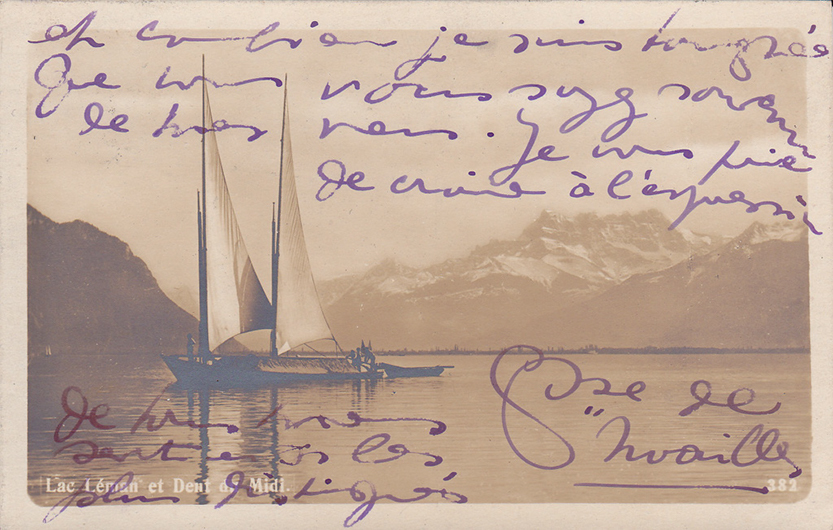 et combien je suis touchée
que vous vous soyez souvenu
de mes vers. Je vous prie
de croire à l'expression
de tous mes
sentiments les
plus distingués
Csse de
Noailles
Lac Léman et Dent du Midi.
382